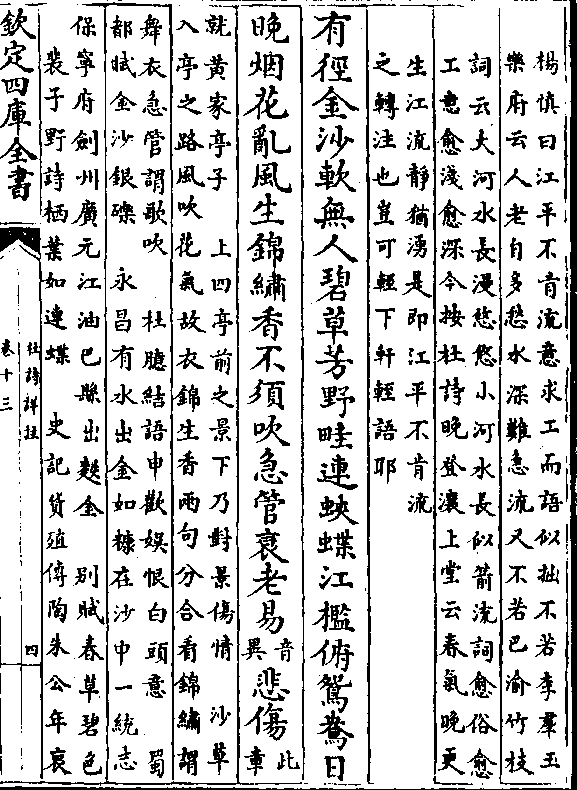 楊慎曰江平不肯流意求工而語似拙不若李羣玉
樂府云人老自多愁水深難急流又不若巴渝竹枝
詞云大河水長漫悠悠小河水長似箭流詞愈俗愈
工意愈淺愈深今按杜詩晚登瀼上堂云春氣晚更
生江流靜猶湧是即江平不肯流
之轉注也豈可輕下軒輊語耶
有徑金沙軟無人碧草芳野畦連蛺蝶江檻俯鴛鴦日
晚烟花亂風生錦繡香不須吹急管衰老易音異悲傷此章
就黄家亭子 上四亭前之景下乃對景傷情 沙草
入亭之路風吹花氣故衣錦生香兩句分合看錦繡謂
舞衣急管謂歌吹 杜臆結語申歡娱恨白頭意 蜀
都賦金沙銀礫 永昌有水出金如糠在沙中一統志
保寧府劍州廣元江油巴縣出麩金 别賦春草碧色
裴子野詩栖葉如連蝶 史記貨殖傳陶朱公年衰
欽定四庫全書
杜詩詳註
卷十三
四